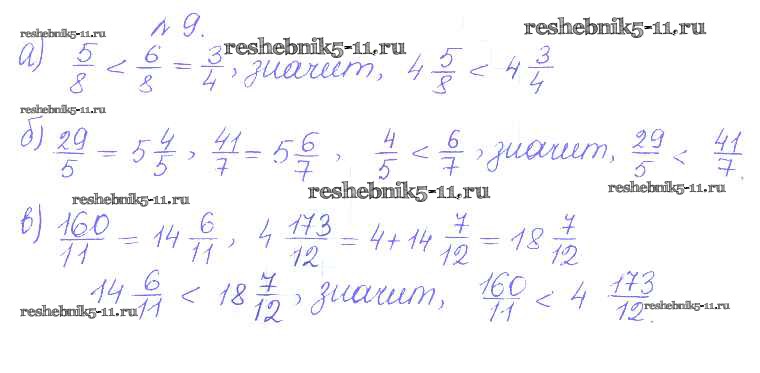 № 9.
reshebnik5-11.ru reshebnik5-11.ru reshebnik5-11.ru
а) 5/8 < 6/8 = 3/4, значит, 4 5/8 < 4 3/4
reshebnik5-11.ru
б) 29/5 = 5 4/5, 41/7 = 5 6/7, 4/5 < 6/7, значит, 29/5 < 41/7.
reshebnik5-11.ru reshebnik5-11.ru reshebnik5-11.ru
в) 160/11 = 14 6/11, 4 173/12 = 4 + 14 7/12 = 18 7/12
14 6/11 < 18 7/12, значит, 160/11 < 4 173/12.
reshebnik5-11.ru reshebnik5-11.ru